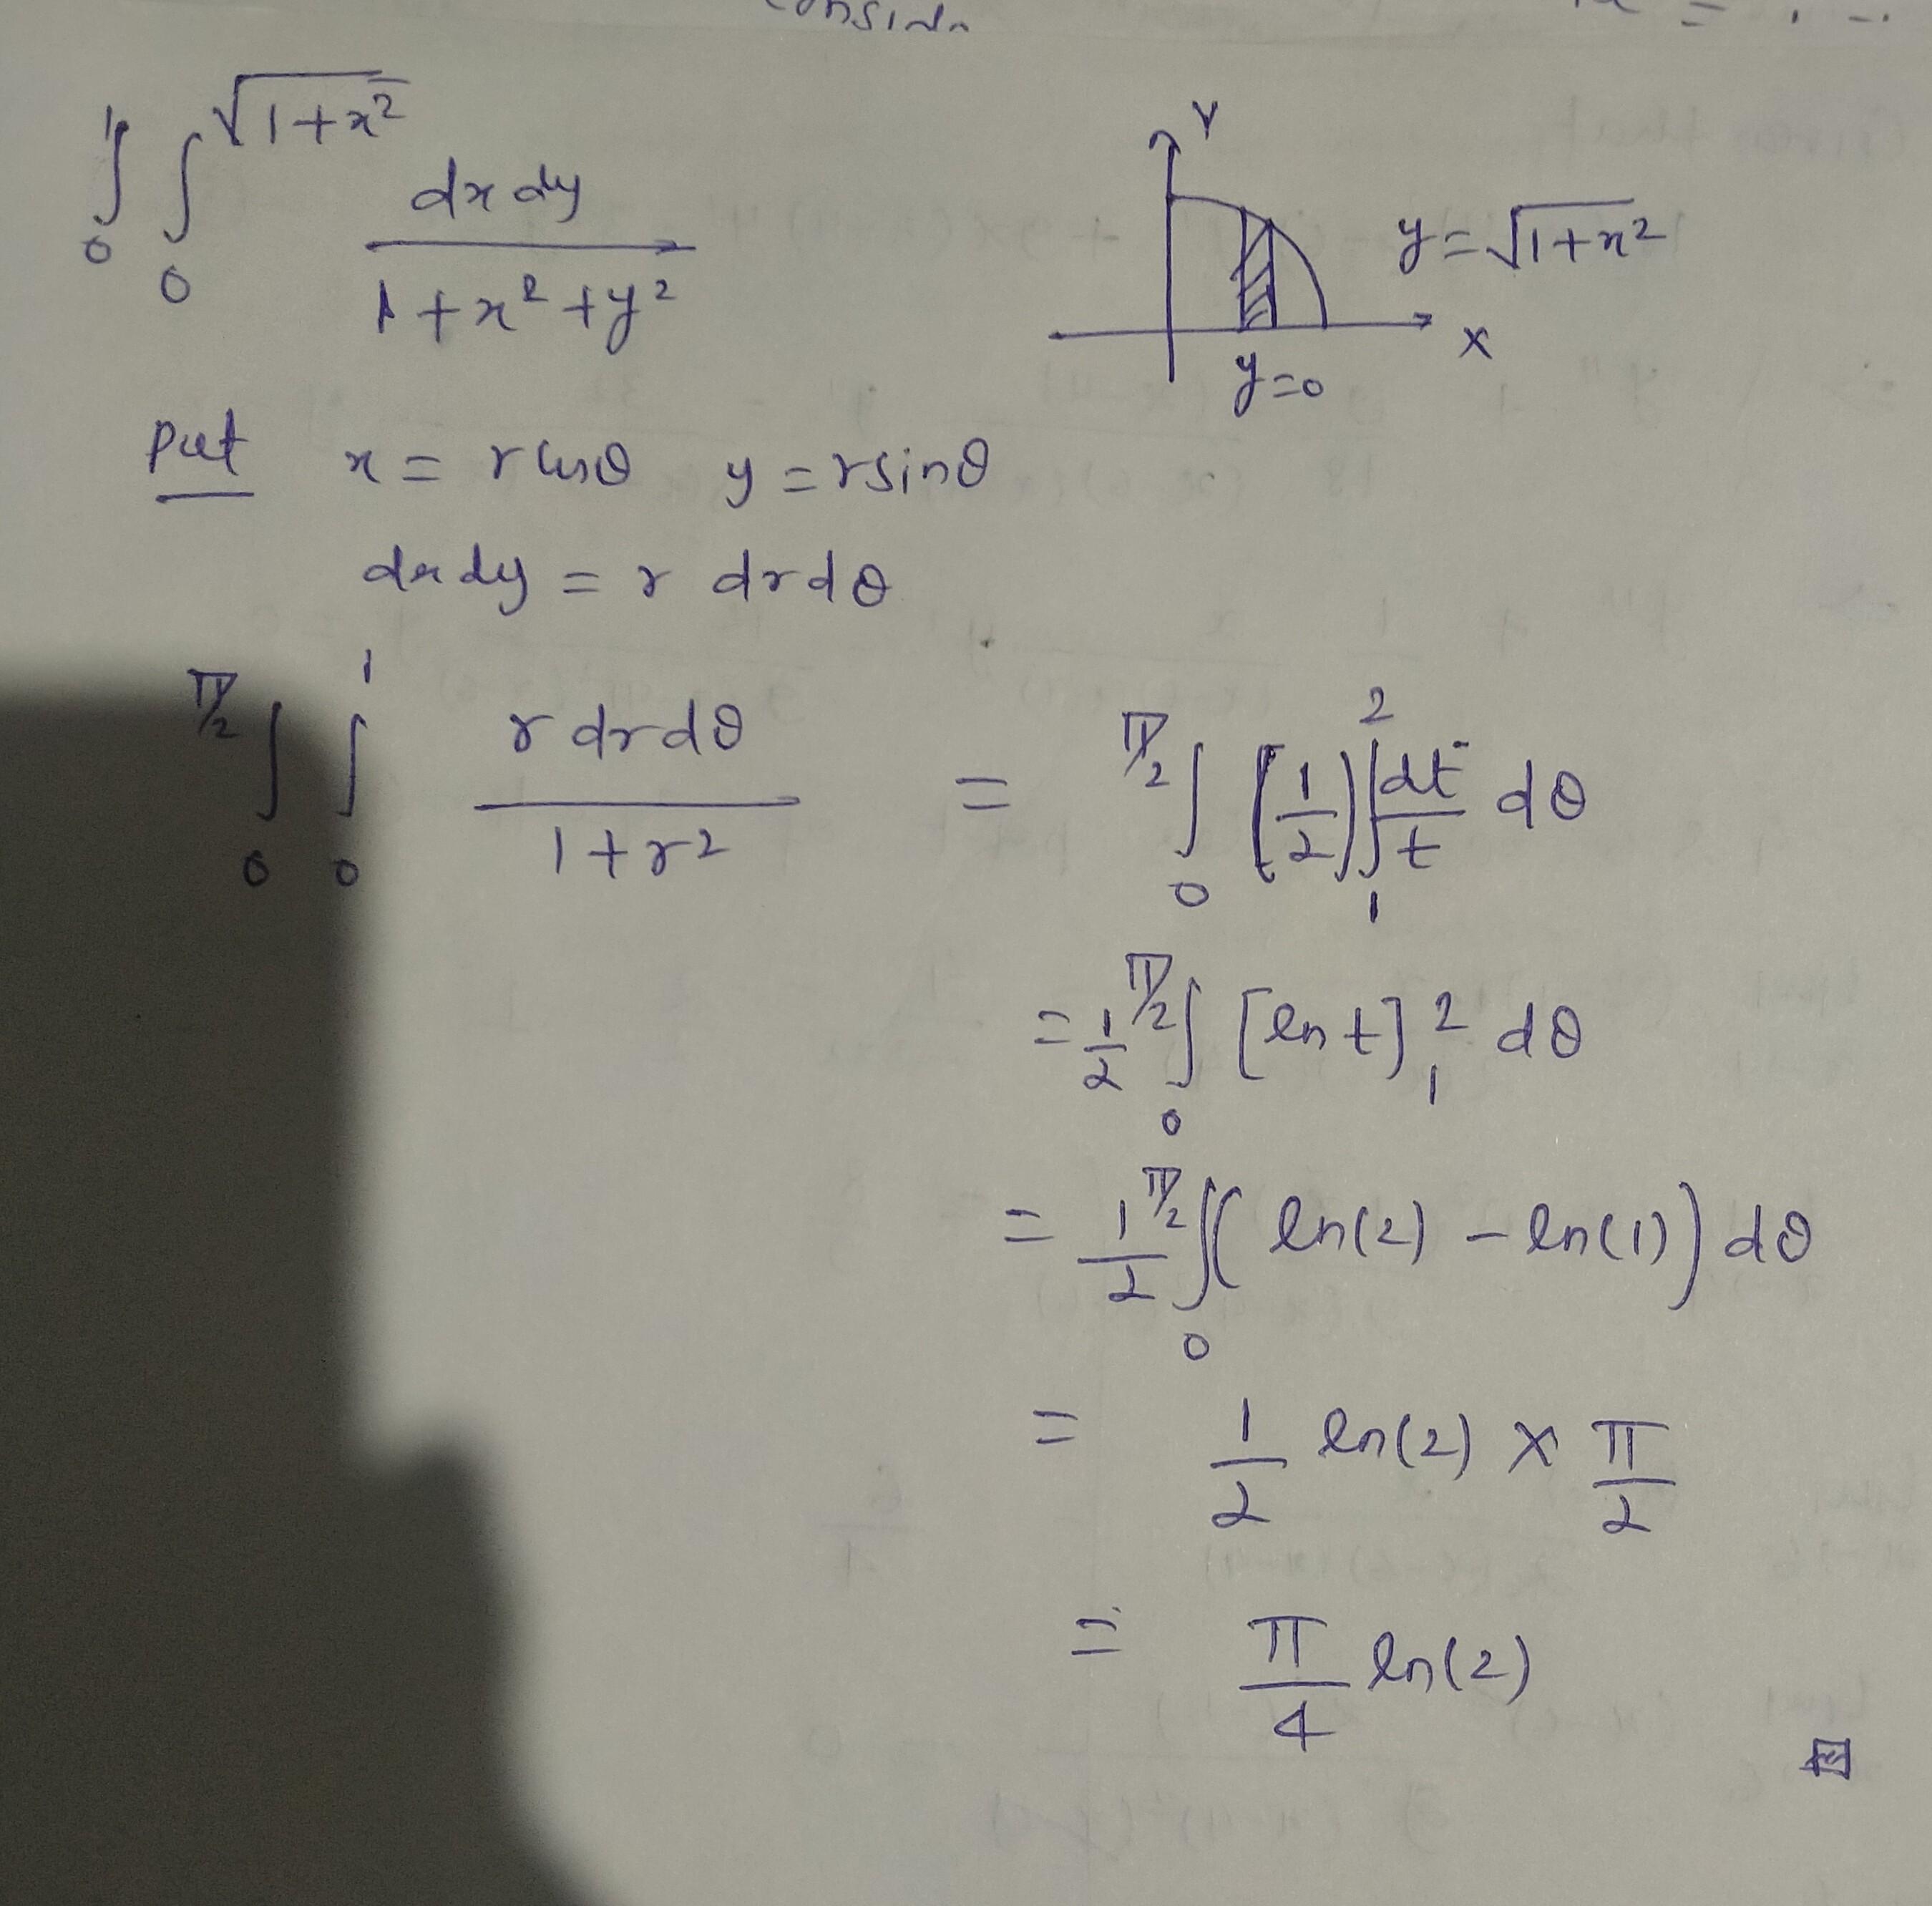 ∫₀¹ ∫₀^√(1+x²) dx dy / (1+x²+y²)
Y
y=√(1+x²)
X
y=0
Put x = r cosθ y = r sinθ
dx dy = r dr dθ
∫₀^(π/2) ∫₀¹ r dr dθ / (1+r²) = ∫₀^(π/2) (1/2) ∫₁² dt/t dθ
= 1/2 ∫₀^(π/2) [ln t]₁² dθ
= 1/2 ∫₀^(π/2) (ln(2) – ln(1)) dθ
= 1/2 ln(2) × π/2
= π/4 ln(2)